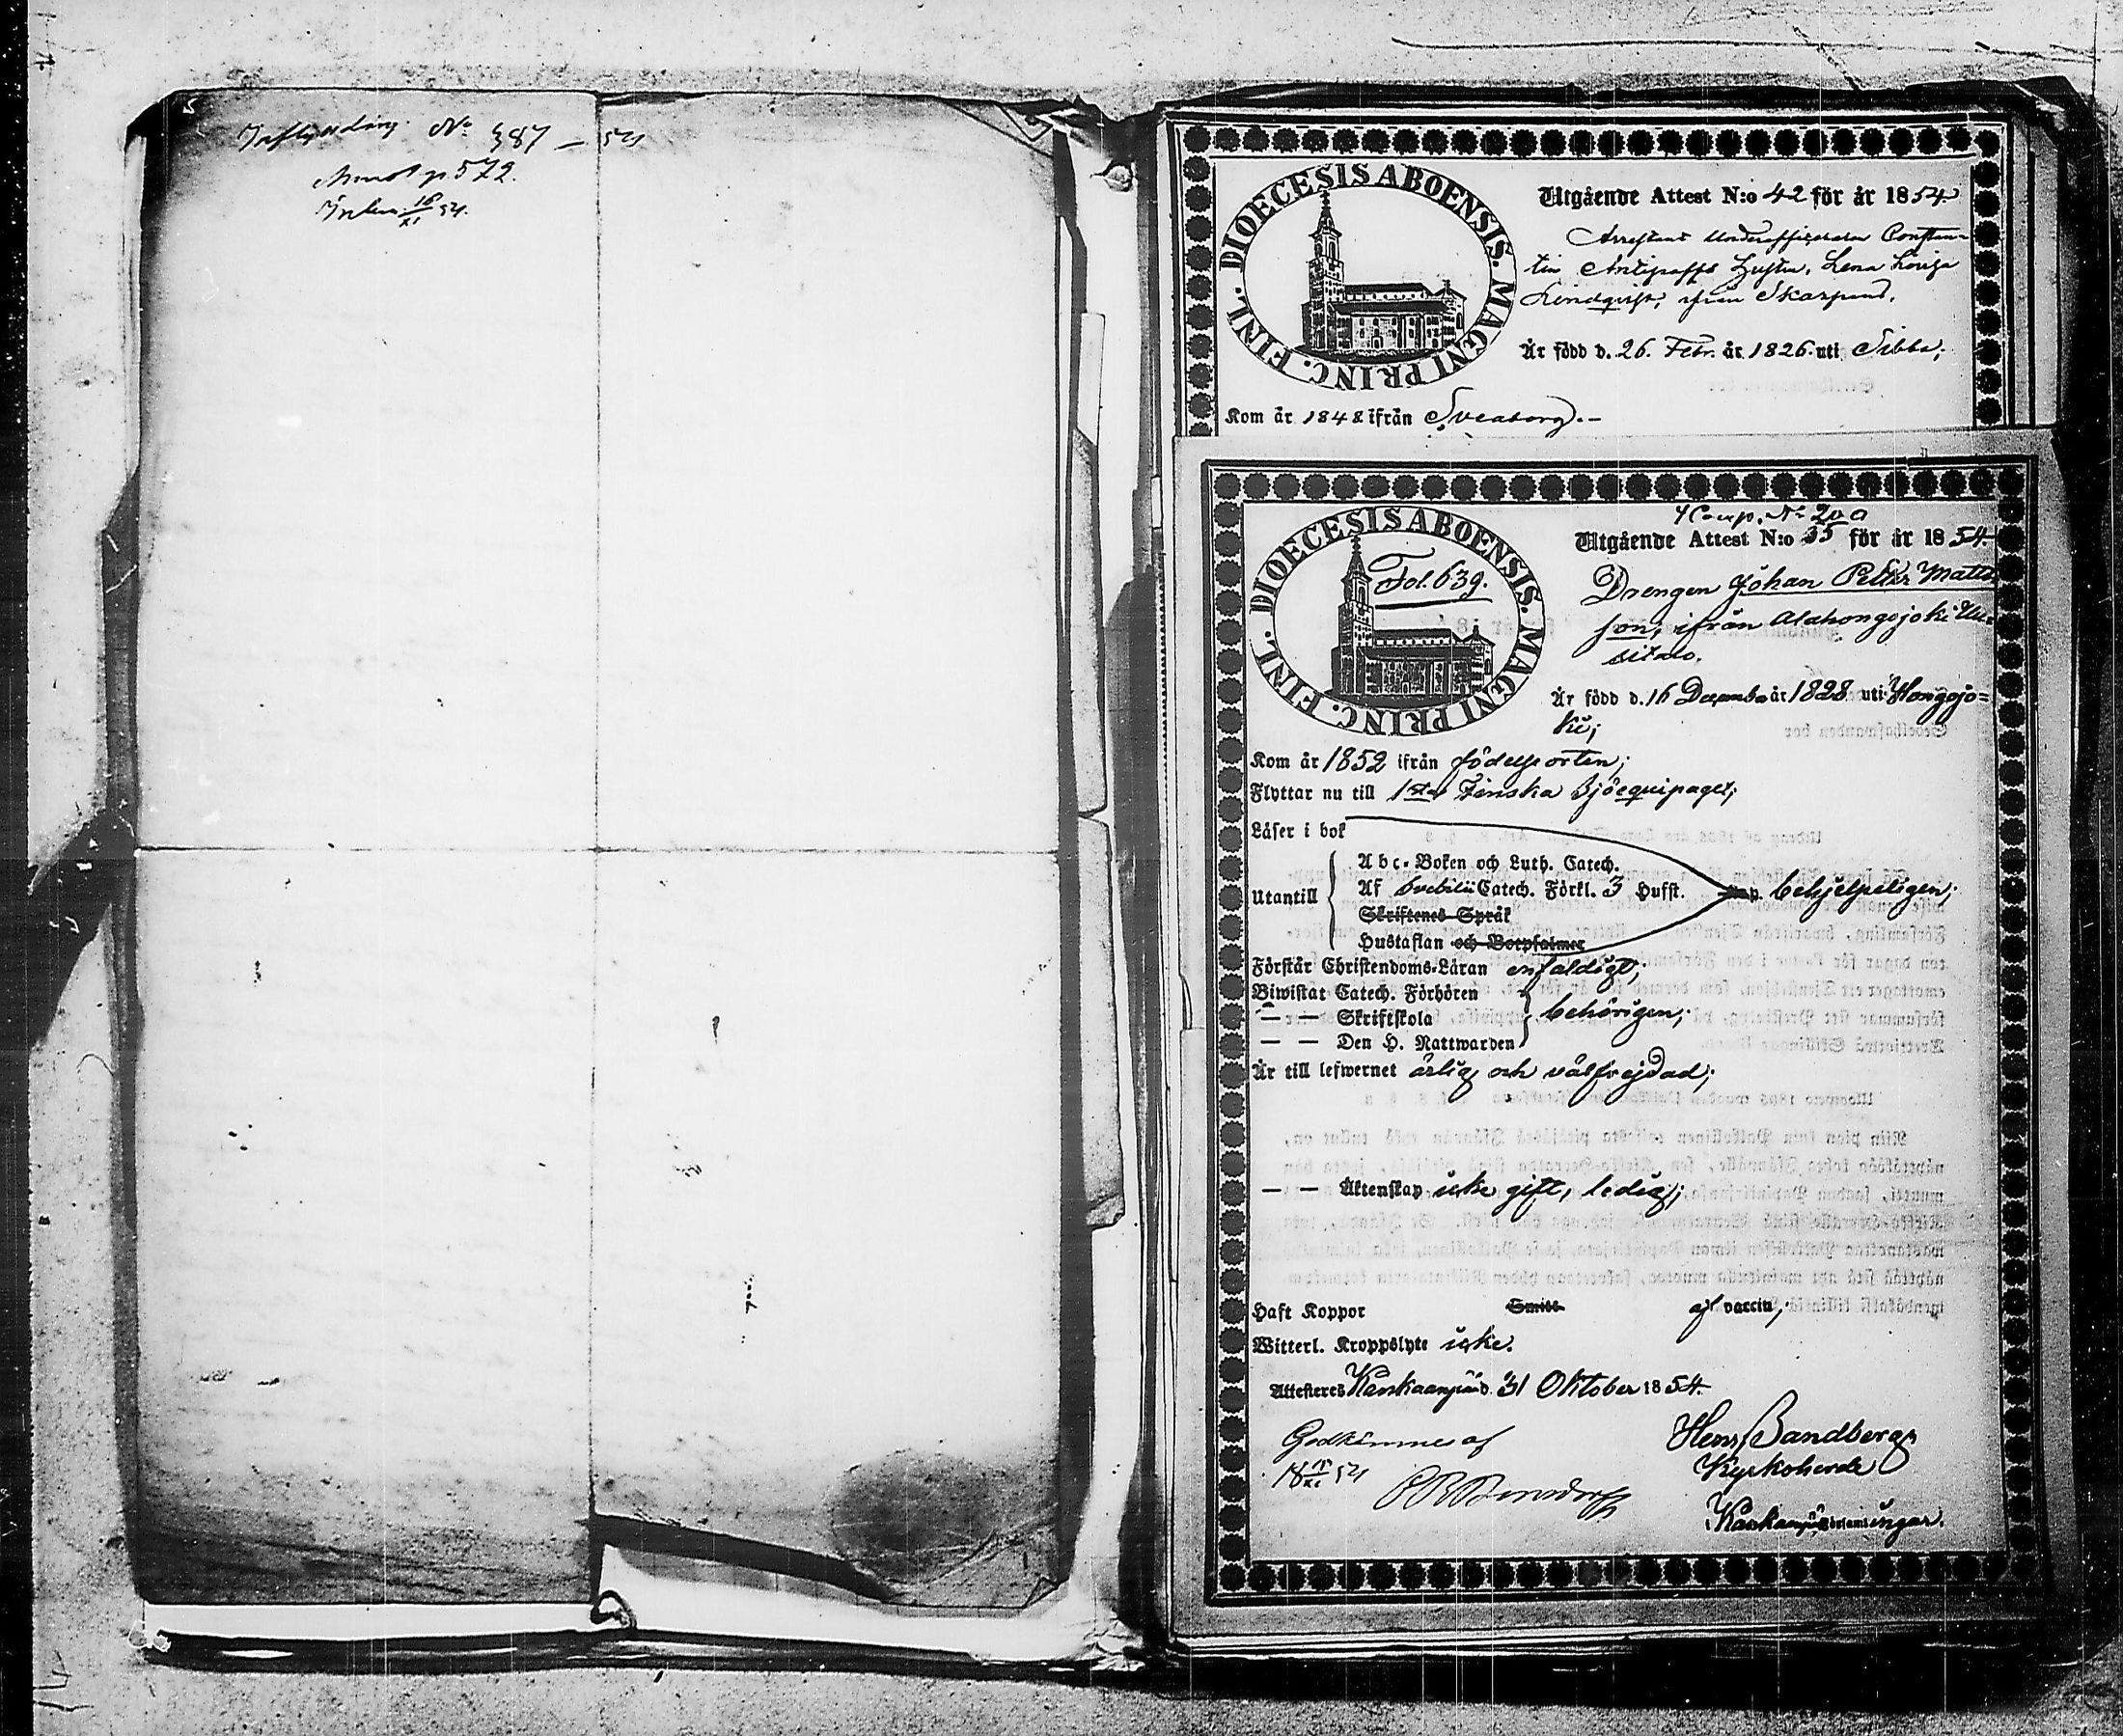 Inflyttning. No 387 – 54
p 572.
16/XI 54.
DIOECESIS ABOENSIS. MAGNI PRINC. FINL.
Utgående Attest N:o 42 för år 1854
Arrestant Underofficeraren Constan-
tin Hustru, Lena Lovisa
Lindqvist, ifrån Skarpans.
Är född d. 26. Febr. år 1826 uti Sibbo;
Kom år 1848 ifrån Sveaborg.-
4 Comp. No 200
DIOECESIS ABOENSIS. MAGNI PRINC. FINL.
Fol. 639.
Utgående Attest N:o 35 för år 1854.
Drengen Johan Petter Matts
son, ifrån Alahongojoki Uu-
sitalo.
Är född d. 16 December år 1828 uti Hongojo=
ki;
Kom år 1852 ifrån födelseorten;
Flyttar nu till 1sta Finska Sjöequipaget;
Läser i bok
Utantill
Abc-Boken och Luth. Catech.
Af Svebilii Catech. Förkl. 3 Hufst. behjelpeligen;
Skriftenes Språk
Hustaflan och Botpsalmer
Förstår Christendoms-Läran enfaldigt;
Biwistat Catech. Förhören
— — Skriftskola behörigen;
— — Den H. Nattwarden
Är till lefwernet ärlig och välfrejdad;
— — Äktenskap icke gift, ledig;
Haft Koppor Smitt af vaccin;
Witterl. Kroppslyte icke.
Attesteras Kankaanpää d. 31 Oktober 1854.
Godkännes af
Hens Sandberg
Kyrkoherde